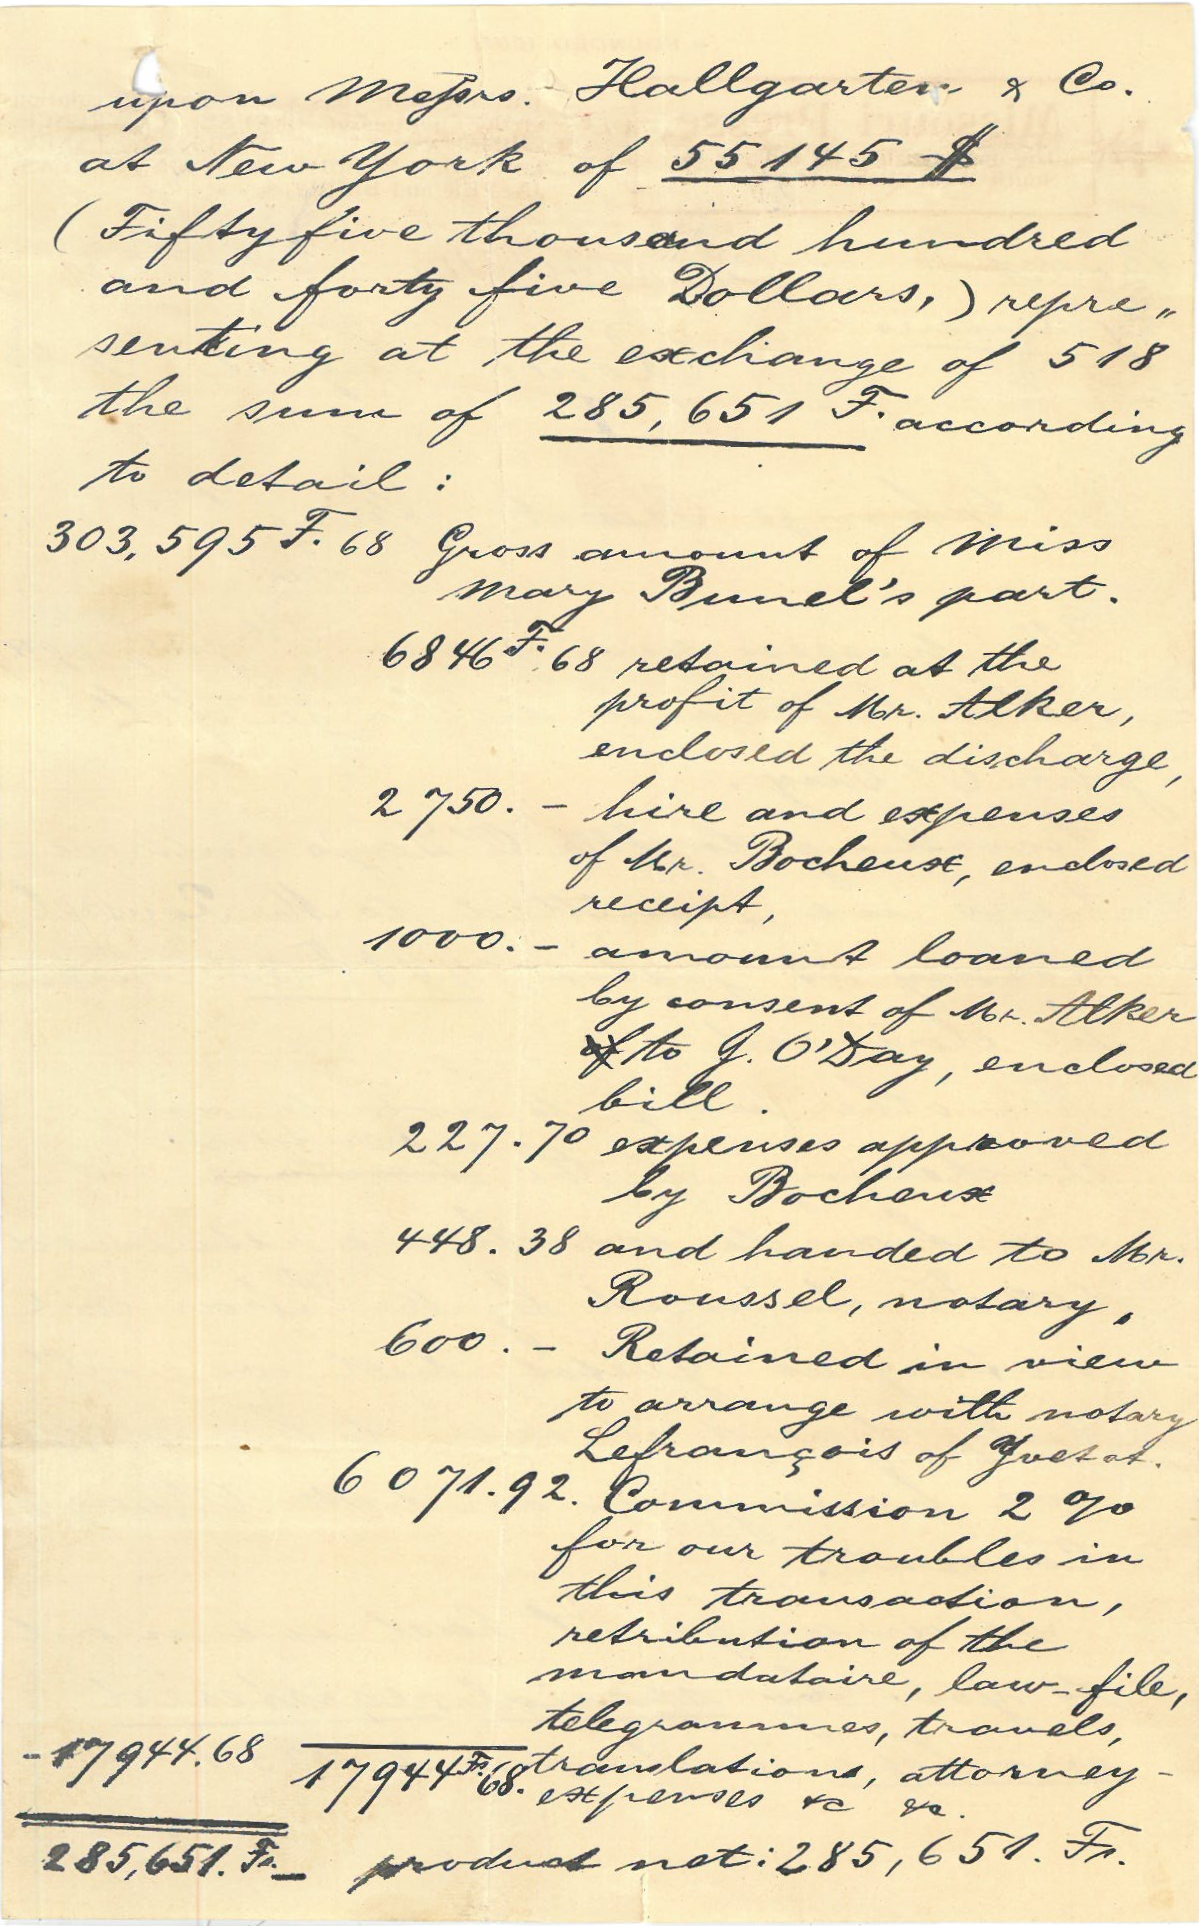 upon Messrs. Hallgarten & Co.
at New York of 55145 $
(Fifty five thousand hundred
and forty five Dollars,) repre„
senting at the exchange of 518
the sum of 285,651 F. according
to detail :
303,595 F. 68 Gross amount of Miss
Mary Bunel's part.
6846 F. 68 retained at the
profit of Mr. Alker,
enclosed the discharge,
2750. – hire and expenses
of Mr. Bocheux, enclosed
receipt,
1000. – amount loaned
by consent of Mr. Alker
of to J. O'Day, enclosed
bill.
227.70 expenses approved
by Bocheux
448.38 and handed to Mr.
Roussel, notary,
600. – Retained in view
to arrange with notary
Lefrançois of Yvetot.
6071.92. Commission 2 %
for our troubles in
this transaction,
retribution of the
mandataire, law-file,
telegrammes, travels,
-17944.68 17944 Fs. 68. translations, attorney-
expenses &c &c.
285,651. Fs. – product net: 285,651. Fs.